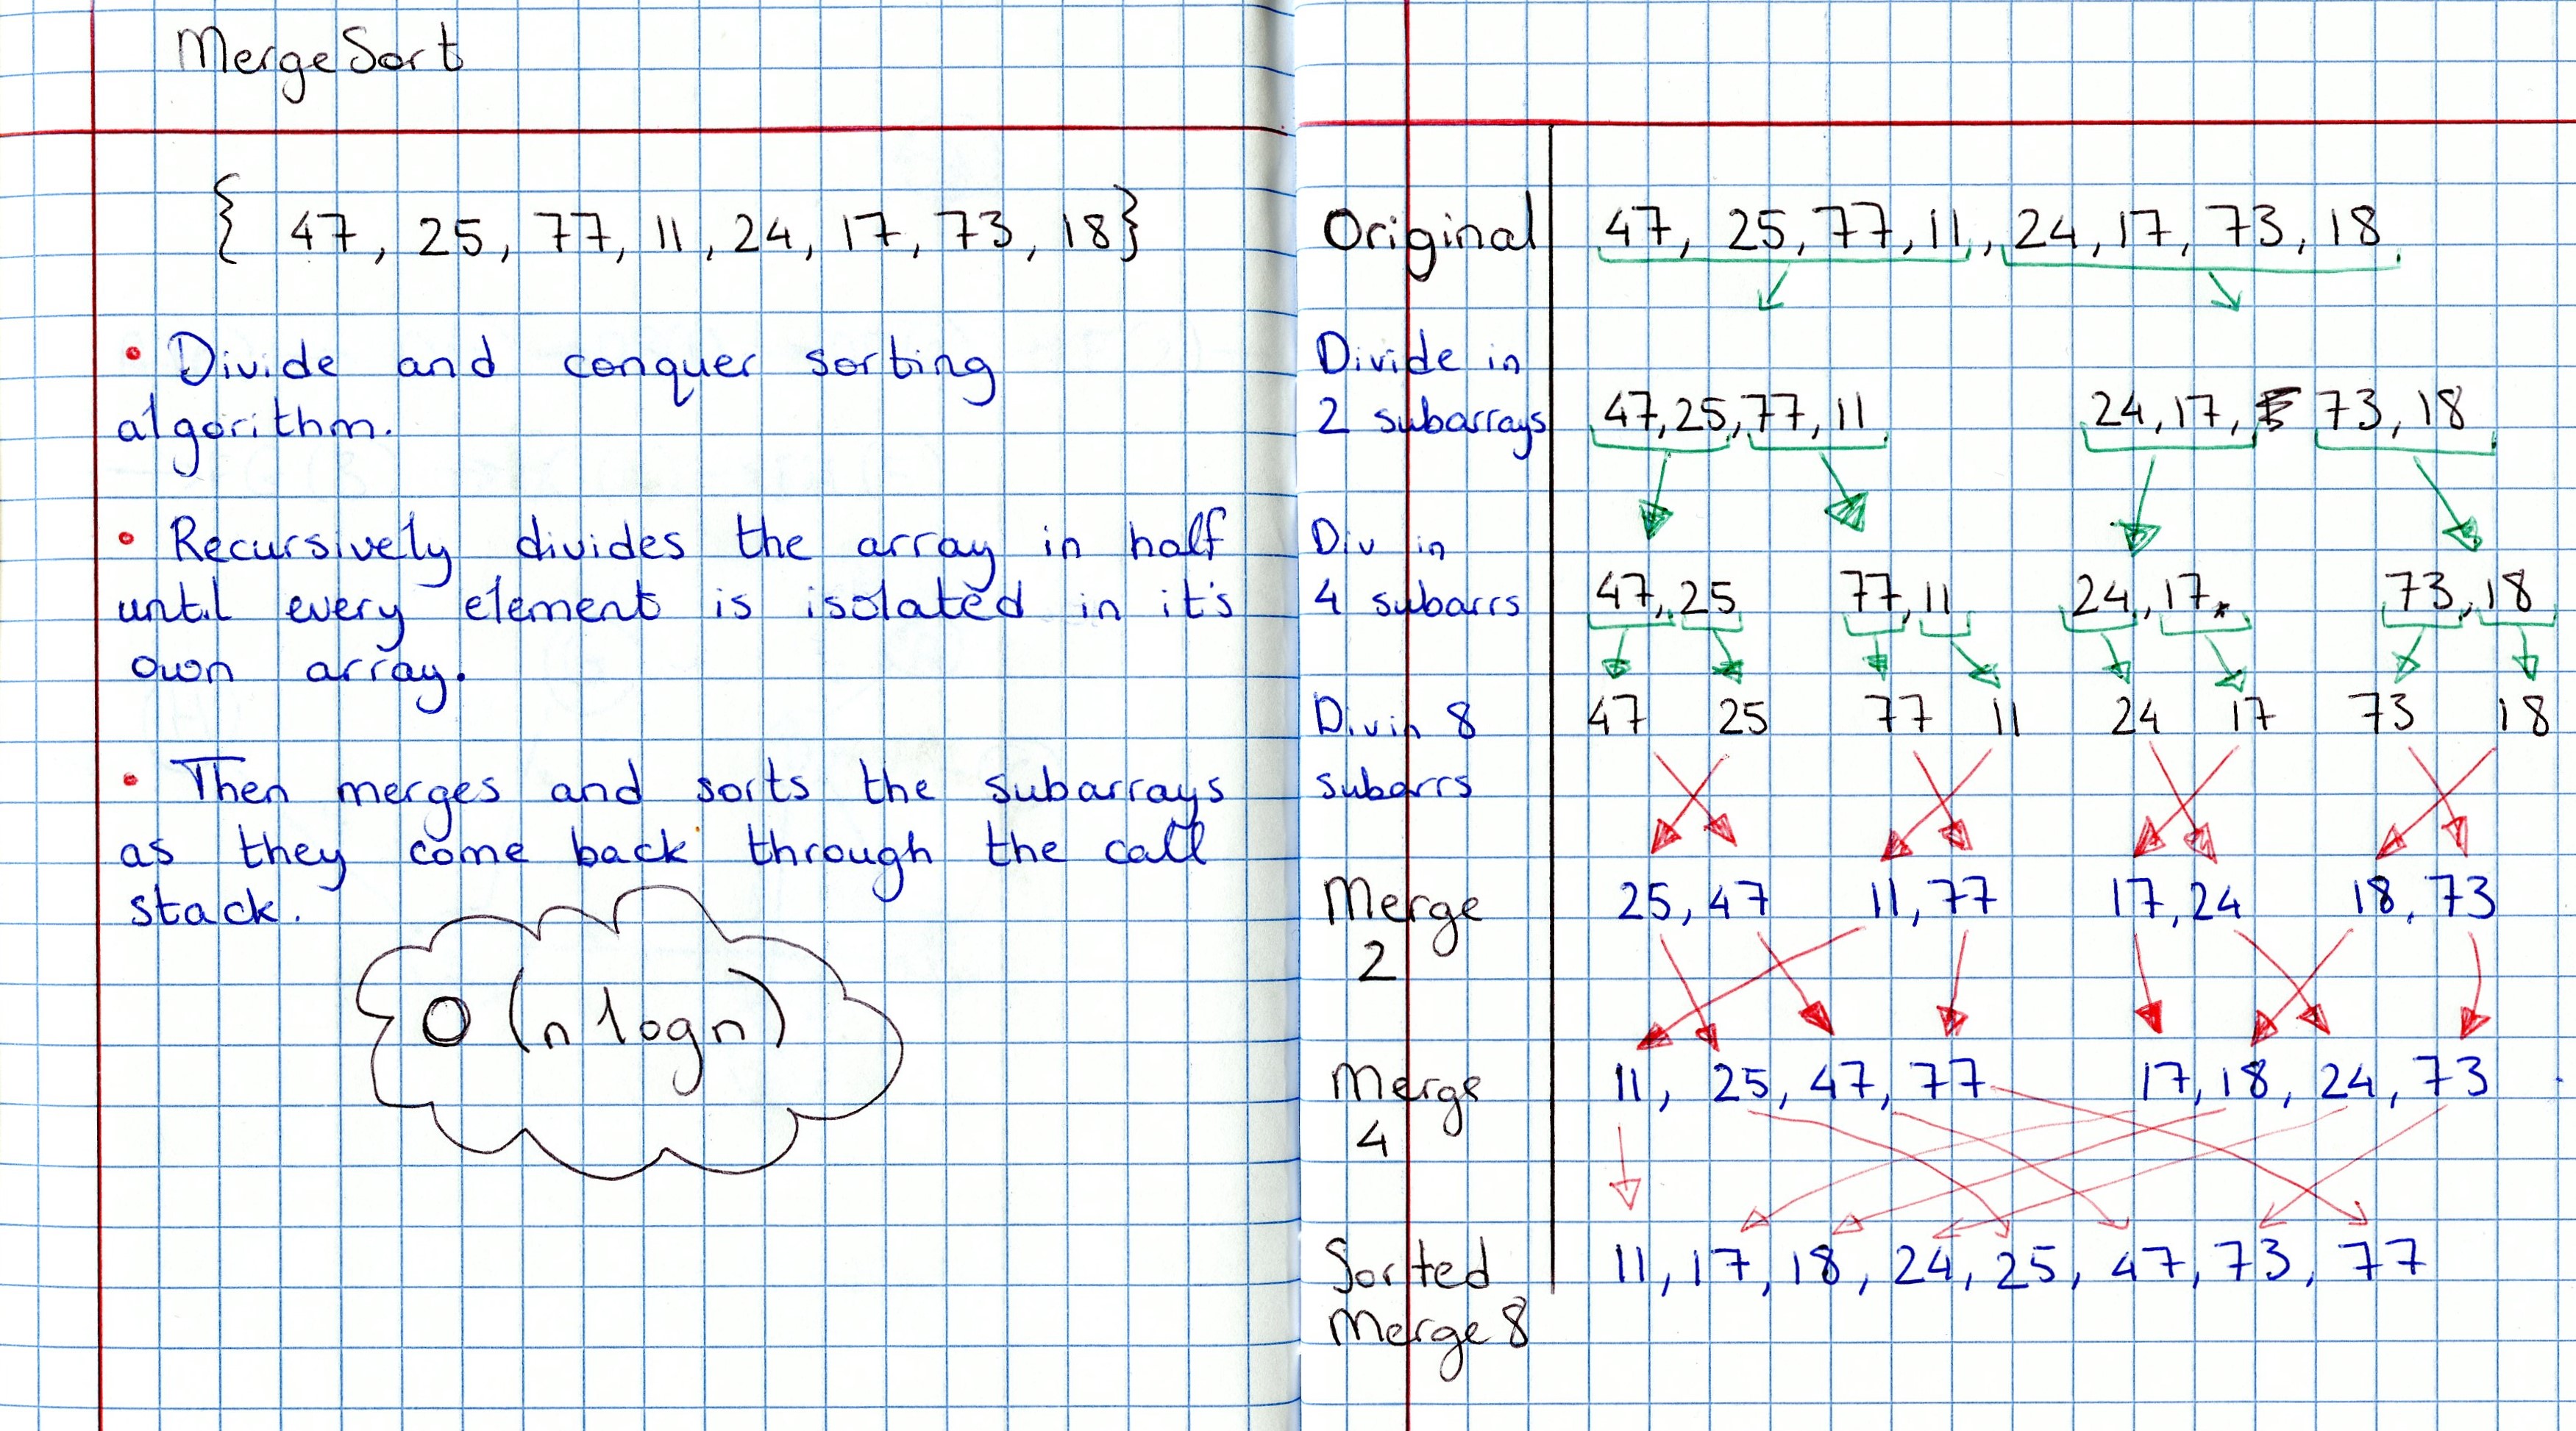 MergeSort
{ 47, 25, 77, 11, 24, 17, 73, 18}
• Divide and conquer sorting
algorithm.
• Recursively divides the array in half
until every element is isolated in it's
own array.
• Then merges and sorts the subarrays
as they come back through the call
stack.
O (n logn)
Original 47, 25, 77, 11, 24, 17, 73, 18
Divide in
2 subarrays 47, 25, 77, 11 24, 17, 73, 18
Div in
4 subarrs 47, 25 77, 11 24, 17 73, 18
Div in 8 47 25 77 11 24 17 73 18
subarrs
Merge 25, 47 11, 77 17, 24 18, 73
2
Merge 11, 25, 47, 77 17, 18, 24, 73
4
Sorted 11, 17, 18, 24, 25, 47, 73, 77
Merge 8